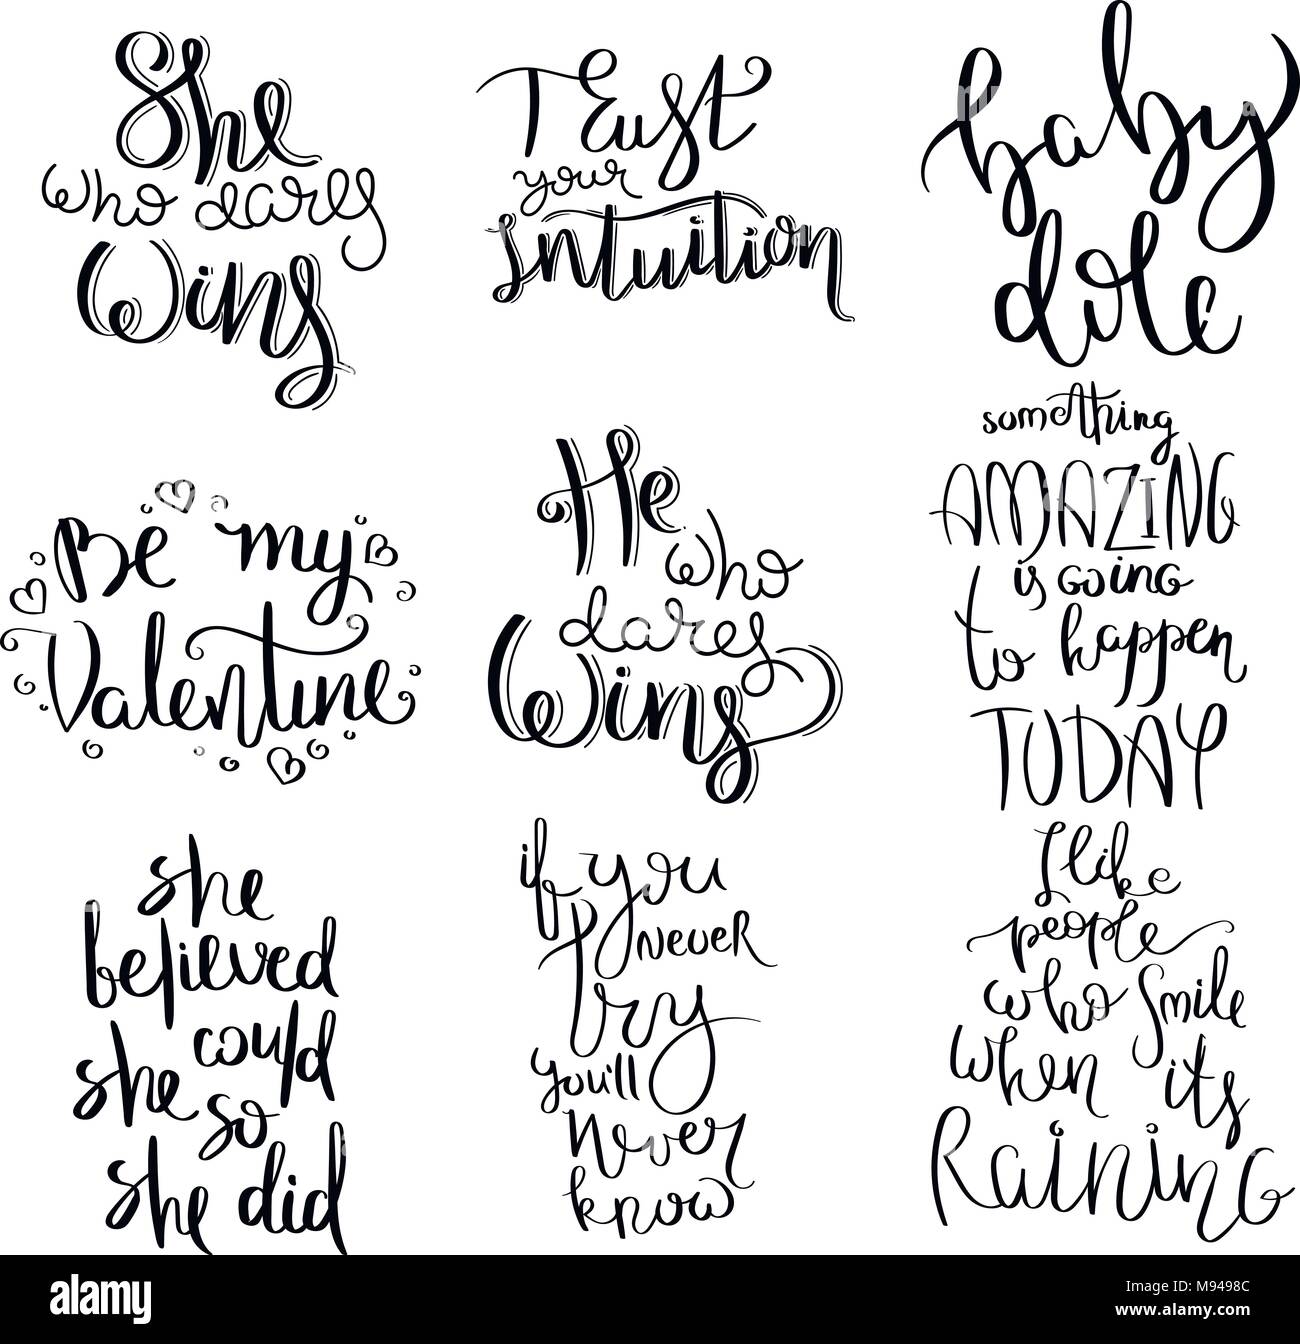 She
who dares
Wins
Trust
your
Intuition
baby
dole
Be my
Valentine
He
who
dares
Wins
something
AMAZING
is GOING
to happen
TODAY
she
believed
she could
so
she did
if you
never
try
you'll
never
know
I like
people
who smile
when its
Raining
alamy
alamy
a
a
a
alamy
Image ID: M9498C
www.alamy.com